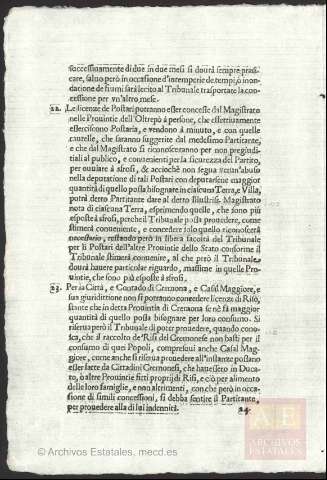 succesciuamente di due in due mesi si dourà sempre prati-
care, saluo però in occasione d'intemperie de tempi, ò inon-
datione de fiumi sarà lecito al Tribunale trasportare la con-
cessione per vn'altro mese.
22. Le licenze de Postari potranno esser concesse dal Magistrato
nelle Prouintie dell'Oltrepò à persone, che effettiuamente
essercisono Postaria, e vendono à minuto, e con quelle
cautelle, che saranno suggerite dal medesimo Partitante,
e che dal Magistrato si riconosceranno per non pregiudi-
tiali al publico, e conuenienti per la sicurezza del Partito,
per ouuiare à sfrosi, & acciochè non segua alcun'abuso
nella deputatione di tali Postari con deputarsene maggior
quantità di quello possa bisognare in ciascuna Terra, e Villa,
potrà detto Partitante dare al detto Illustriss. Magistrato
nota di ciascuna Terra, esprimendo quelle, che sono più
esposte à sfrosi, perche il Tribunale possa prouedere, come
stimerà conueniente, e concedere solo quello riconoscerà
necessario, restando però in libera facoltà del Tribunale
per li Postari dell'altre Prouintie dello Stato conforme il
Tribunale stimerà conuenire, al che però il Tribunale
dourà hauere particolar riguardo, massime in quelle Pro-
uintie, che sono più esposte à sfrosi.
23. Per la Città, e Contado di Cremona, e Casal Maggiore, e
sua giuridittione non si potranno concedere licenze di Risò,
stante che in detta Prouintia di Cremona se nè fà maggior
quantità di quello possa bisognare per loro consumo. Si
riserua però il Tribunale di poter prouedere, quando cono-
sca, che il raccolto de' Risi del Cremonese non basti per il
consumo di quei Popoli, compresoui anche Casal Mag-
giore, come anche si riserua prouedere all'instanze possano
esser fatte da Cittadini Cremonesi, che hauessero in Duca-
to, ò altre Prouintie fitti proprij di Risi, e ciò per alimento
delle loro famiglie, e non altrimenti, con che però in occa-
sione di simili concessioni, si debba sentire il Partitante,
per prouedere alla di lui indennità.
24.
AE
ARCHIVOS
ESTATALES
© Archivos Estatales, mecd.es